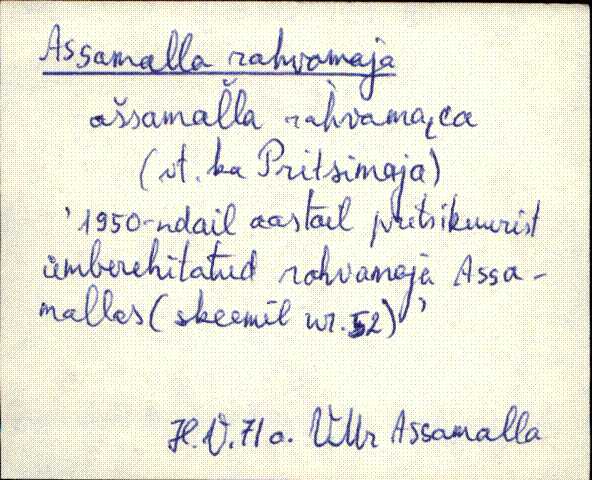 Assamalla rahvamaja
aššamaľľa ràhvama͔ca
(vt. ka Pritsimaja)
'1950-ndail aastail pritsikuurist
ümberehitatud rahvamaja Assa-
mallas (skeemil nr. 52)'
H.V. 71 a. VMr Assamalla